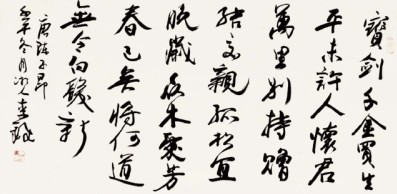 寶劍千金買生
平未許人懷君
萬里別持贈
結交親孤松宜
晚歲衆木愛芳
春已矣將何道
無令白髮新
唐陳子昂
冬月